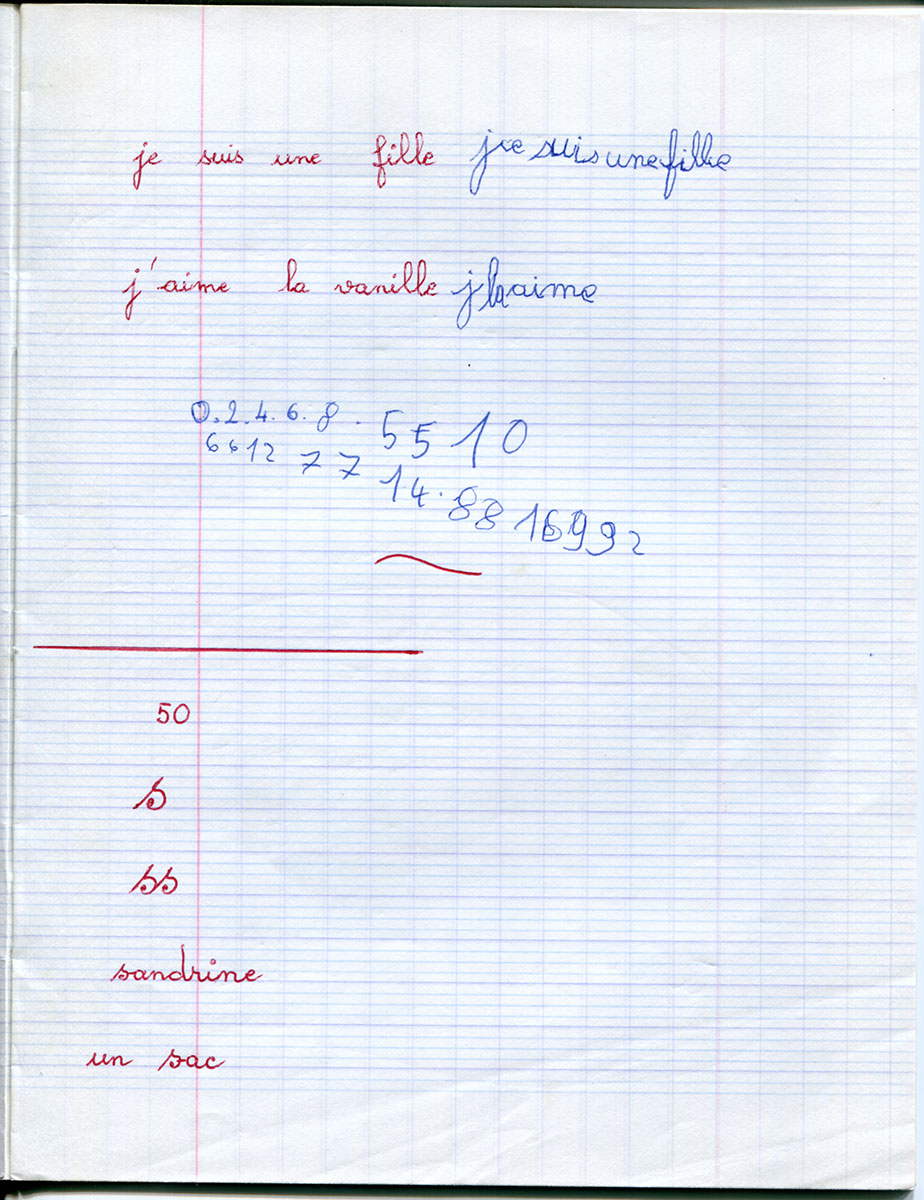 je suis une fille jre suis une fille
j'aime la vanille jlaaime
0.2.4.6.8. 55 10
6612 77 14.88 16992
50
s
ss
sandrine
un sac